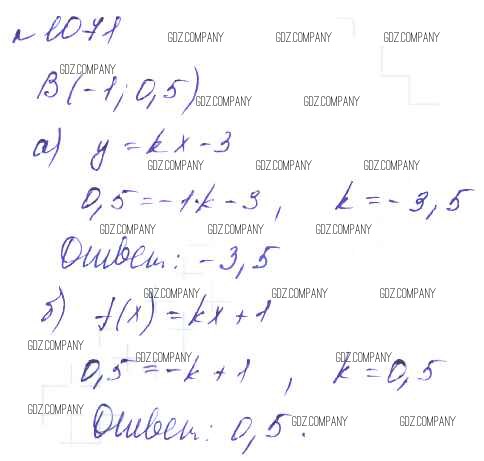 №1071
GDZ.COMPANY GDZ.COMPANY GDZ.COMPANY
GDZ.COMPANY
B(-1; 0,5)
GDZ.COMPANY GDZ.COMPANY
а) y = kx - 3
GDZ.COMPANY GDZ.COMPANY GDZ.COMPANY
0,5 = -1·k - 3, k = -3,5
GDZ.COMPANY GDZ.COMPANY GDZ.COMPANY
Ответ: -3,5
GDZ.COMPANY GDZ.COMPANY GDZ.COMPANY
б) f(x) = kx + 1
GDZ.COMPANY
GDZ.COMPANY GDZ.COMPANY
0,5 = -k + 1, k = 0,5
GDZ.COMPANY
Ответ: 0,5.
GDZ.COMPANY GDZ.COMPANY